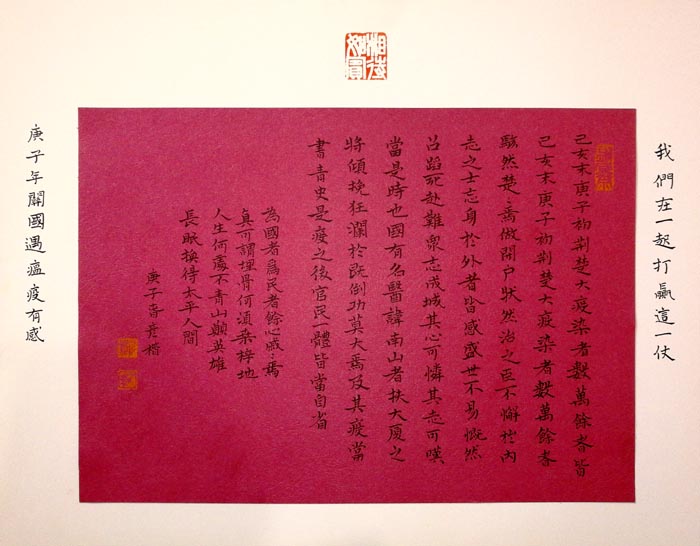 我們在一起打贏這一仗
己亥末庚子初荆楚大疫染者數萬餘 皆
己亥末庚子初荆楚大疫染者數萬餘
駭然楚 做閉户狀然治之臣不懈於内
志之士忘身於外者皆感盛世不易慨然
召蹈死赴難眾志成城其心可憐其志可嘆
當是時也國有名醫諱南山者扶大厦之
將傾挽狂瀾於既倒功莫大焉及其疫當
書青史是疫之後官民一體皆當自省
為國者為民者餘心戚〻焉
真可謂埋骨何須桑梓地
人生何處不青山顛英雄
長眠換得太平人間
庚子 楷
庚子年 國遇瘟疫有感